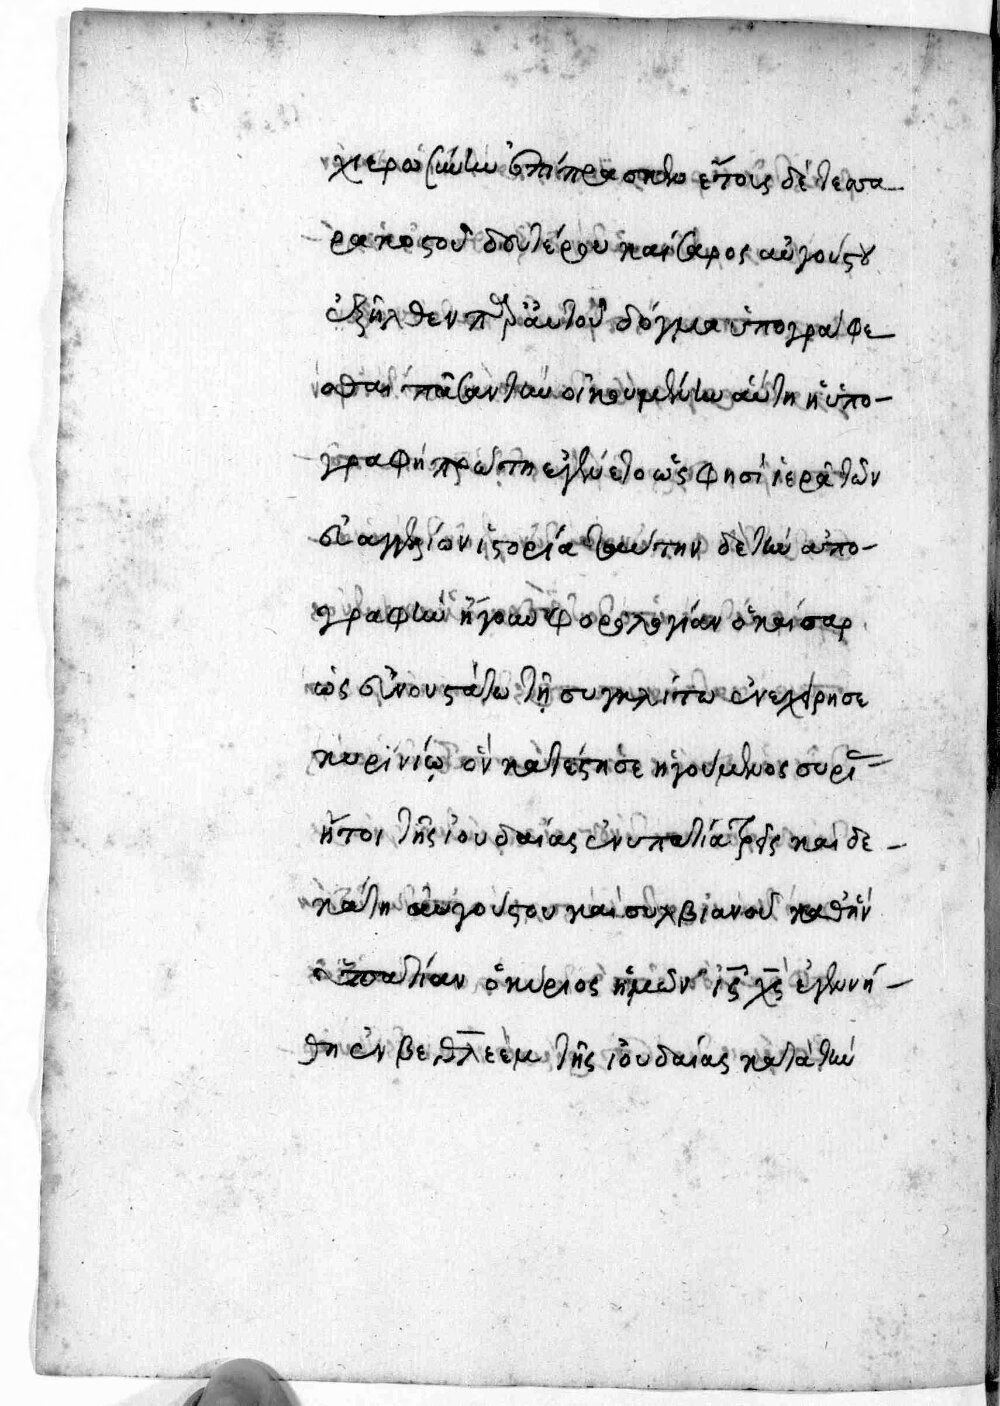 χιερωσύνην ἐπίπρασκεν ἔτους δὲ τεσσα
ρακοστοῦ δευτέρου καίσαρος αὐγούστου
ἐξῆλθεν παρ' αὐτοῦ δόγμα ὑπογράφε
σθαι πᾶσαν τὴν οἰκουμένην αὕτη ἡ ὑπο
γραφὴ πρώτη ἐγένετο ὥς φησὶ ἱερὰ τῶν
εὐαγγελίων ἱστορία ταύτην δὲ τὴν ἀπο
γραφὴν ἤγουν φορολογίαν ὁ καίσαρ
ὡς εὐνουστάτω τῇ συγκλίτω ἐνεχείρησε
κυρινίῳ ὃν κατέστησε ἡγούμενος συρίας
ἤτοι τῆς ἰουδαίας ἐν ὑπατία τρὶς καὶ δε
κάτη αὐγούστου καὶ συλβιανοῦ καθ' ἣν
ὑπατίαν ὁ κύριος ἡμῶν ις χς ἐγεννή
θη ἐν βεθλεὲμ τῆς ἰουδαίας κατὰ τὴν